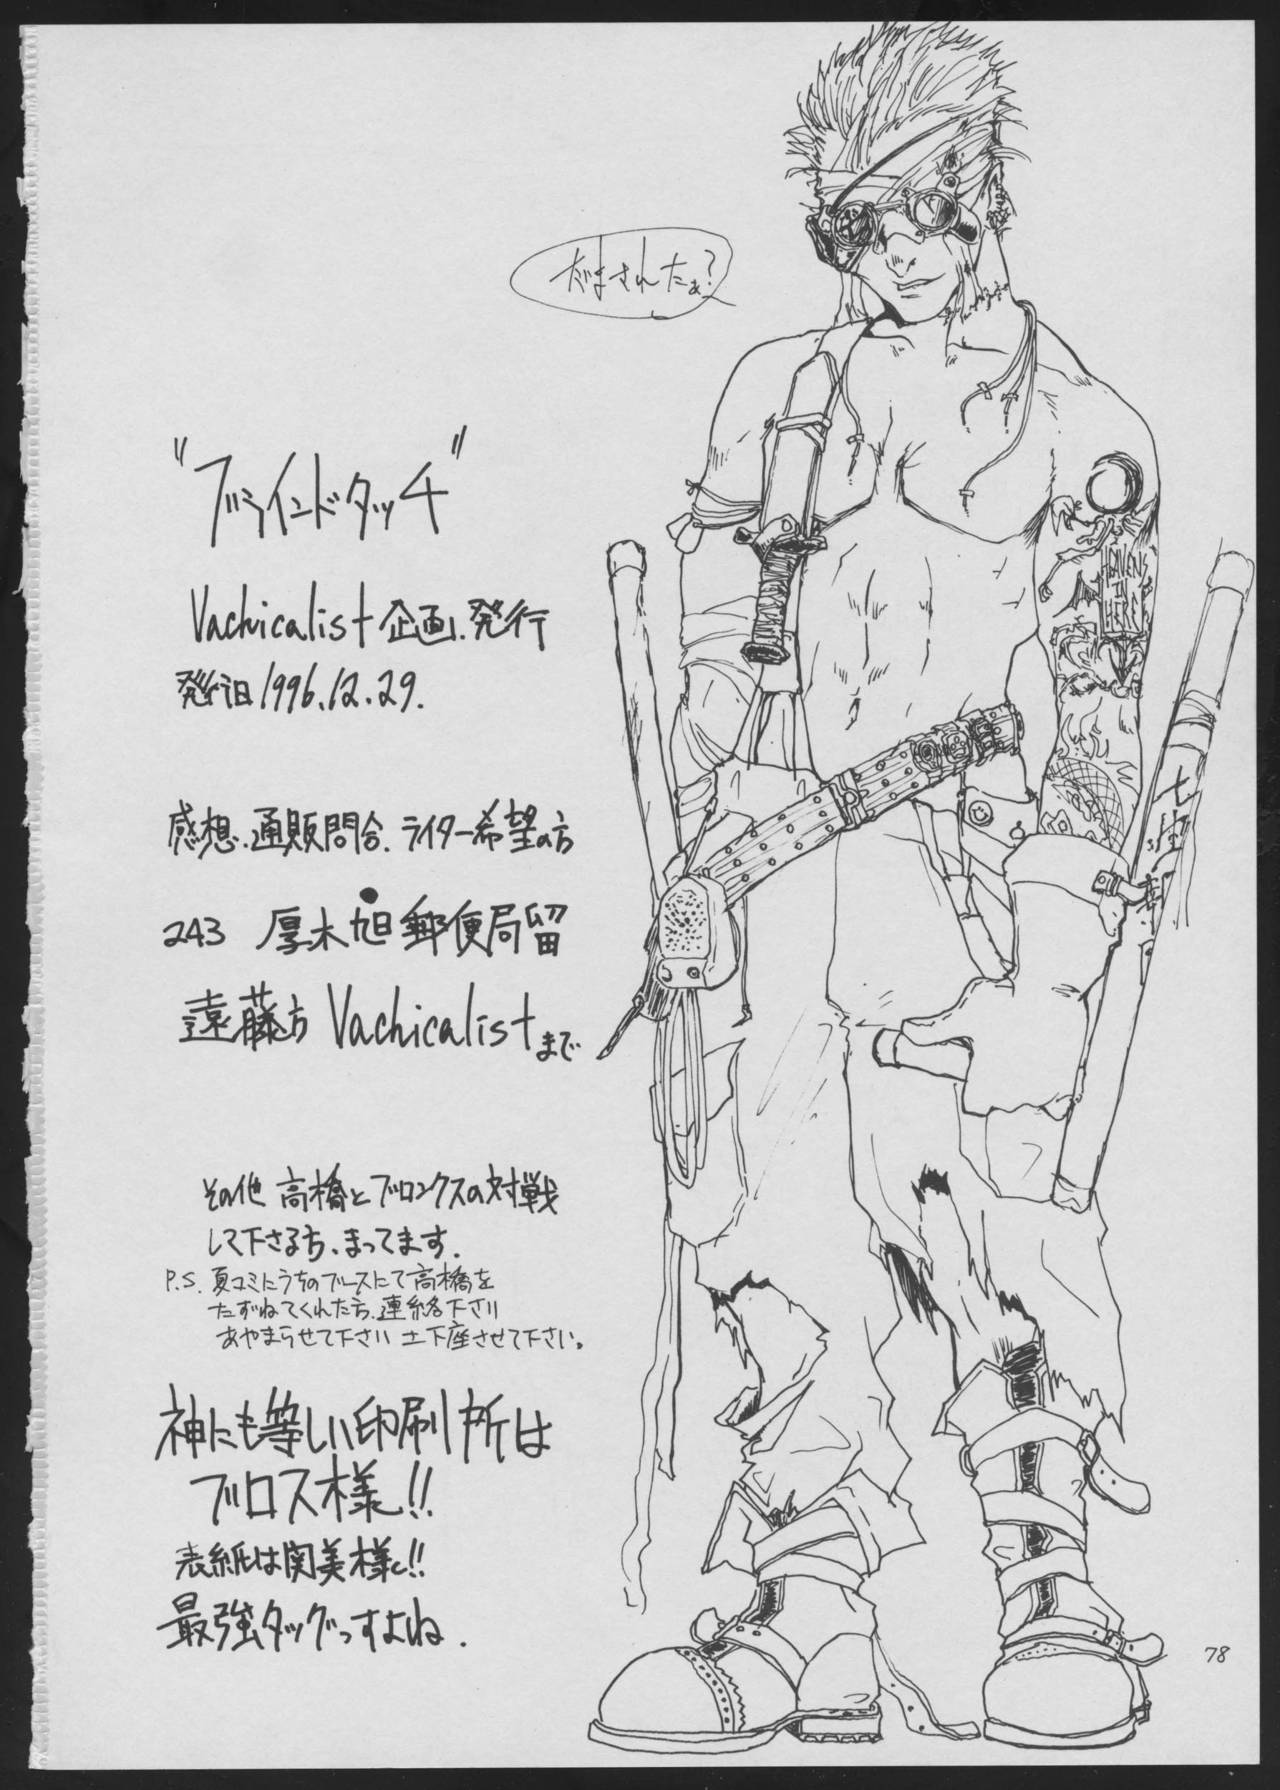 だまされたぁ?
"ブラインドタッチ"
Vachicalist 企画.発行
発行日 1996.12.29.
感想.通販問合.ライター希望の方
243 厚木旭郵便局留
遠藤方 Vachicalist まで
その他 高橋とブロンクスの対戦
して下さる方、まってます.
P.S. 夏コミにうちのブースにて高橋を
たずねてくれた方.連絡下さい
あやまらせて下さい 土下座させて下さい。
神にも等しい印刷所は
ブロス様!!
表紙は関美様!!
最強タッグっすよね.
HEAVENS
IN
HERE
78